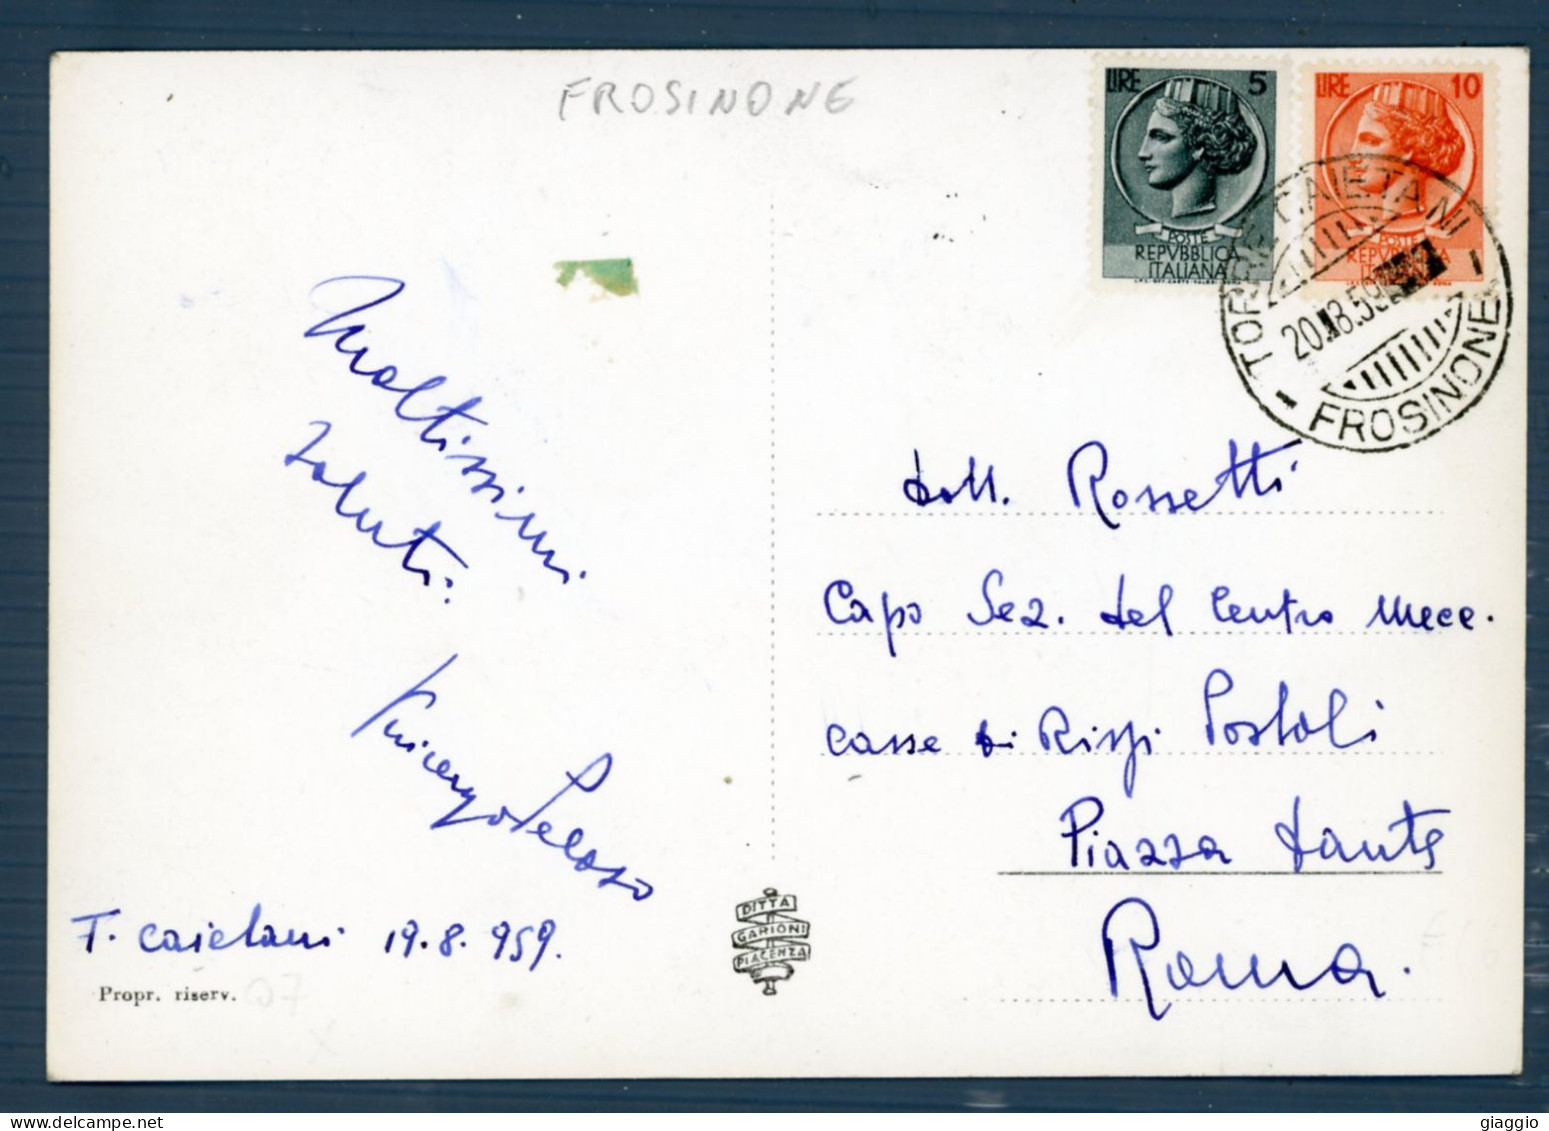 FROSINONE
LIRE 5
POSTE
REPVBBLICA
ITALIANA
LIRE 10
POSTE
REPVBBLICA
TORRE CAIETANI
20.8.59
FROSINONE
Moltissimi
saluti:
Vincenzo Peloso
T. Caietani 19.8.959.
Propr. riserv.
DITTA
GARIONI
PIACENZA
dott. Rossetti
Capo Sez. del Centro Mecc.
Casse di Rispi Postali
Piazza Dante
Roma.
giaggio